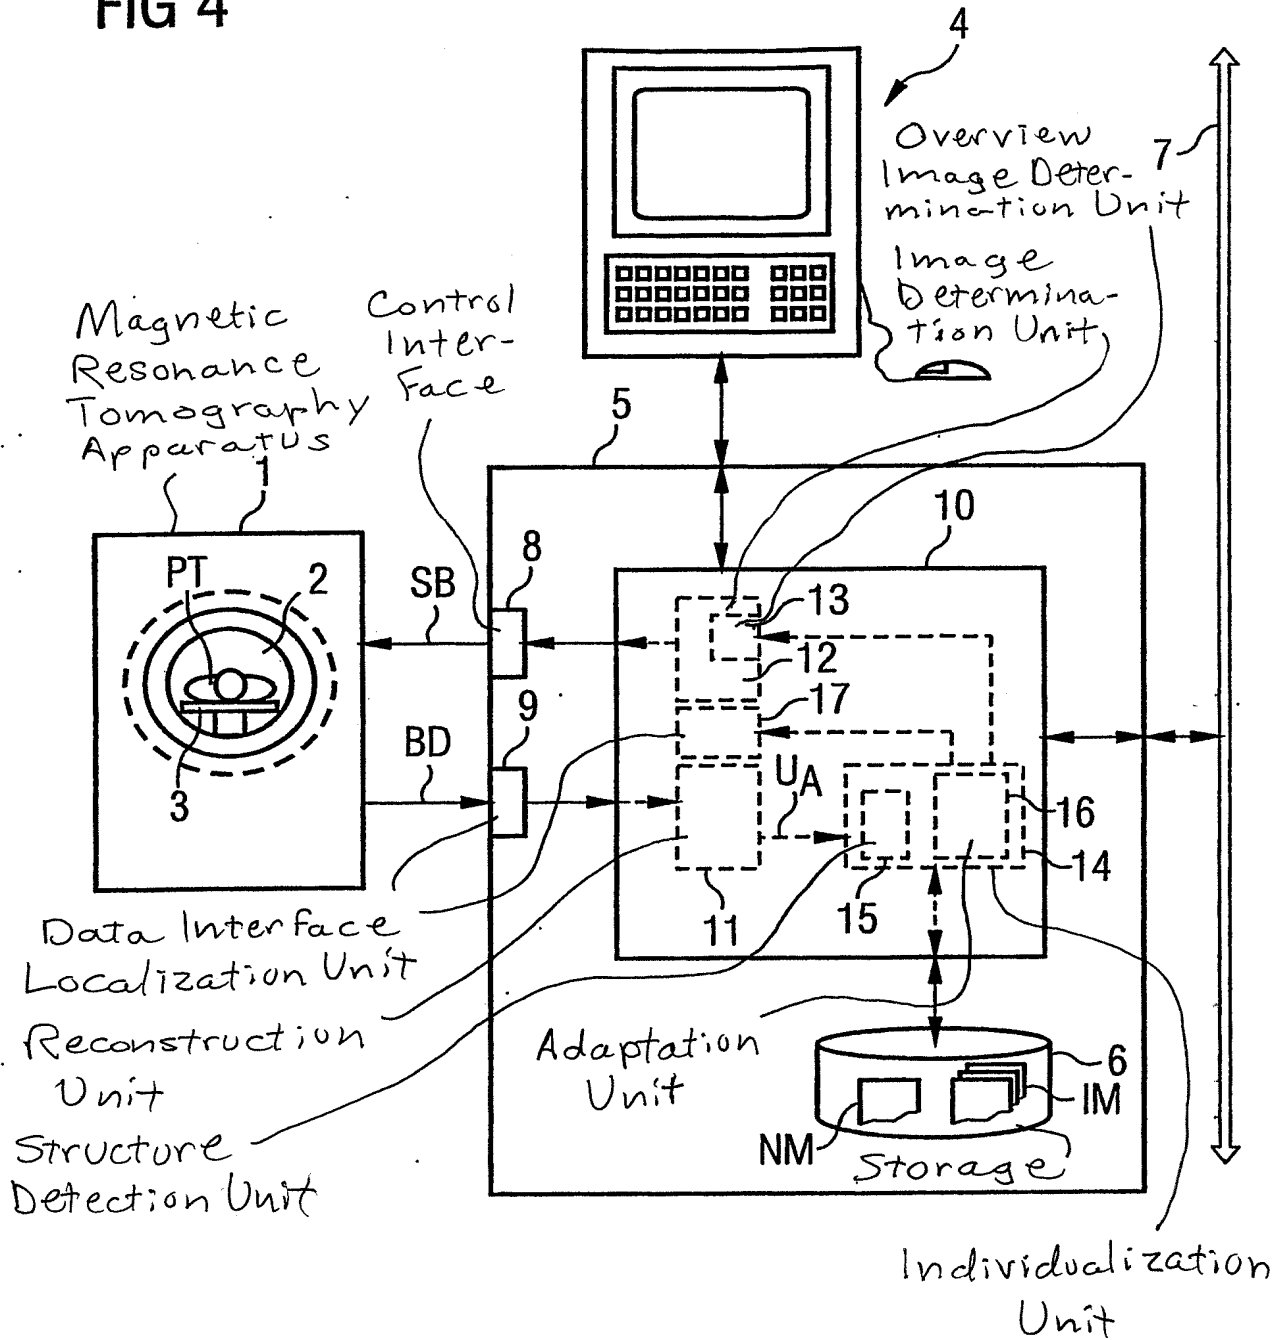 FIG 4
4
Overview
Image Deter-
mination Unit
7
Image
Determina-
tion Unit
Magnetic
Resonance
Tomography
Apparatus
1
Control
Inter-
Face
5
10
PT
2
SB
8
13
12
17
9
BD
3
UA
16
14
15
11
Data Interface
Localization Unit
Reconstruction
Unit
Adaptation
Unit
6
IM
NM
Storage
Structure
Detection Unit
Individualization
Unit